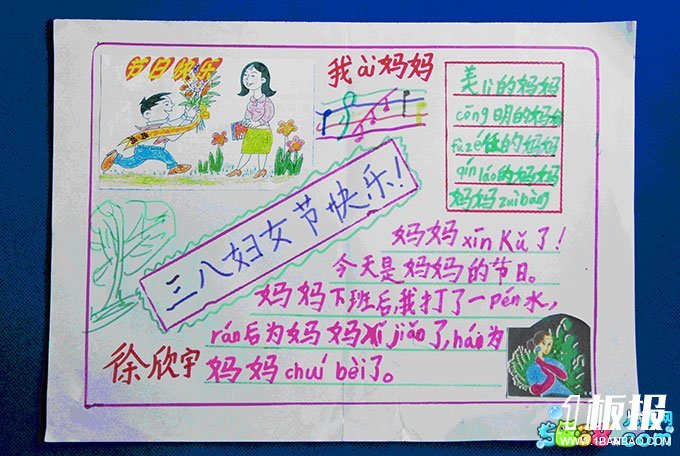 节日快乐
我ài妈妈
美lì的妈妈
cōng明的妈妈
fùzé任的妈妈
qínláo的妈妈
妈妈zuìbàng
三八妇女节快乐!
妈妈xīn Kǔ了!
今天是妈妈的节日。
妈妈下班后,我打了一pén水,
rán后为妈妈xǐ jiǎo了,hái为
妈妈chuí bèi了。
徐欣宇
1板报
WWW.1BANBAO.COM